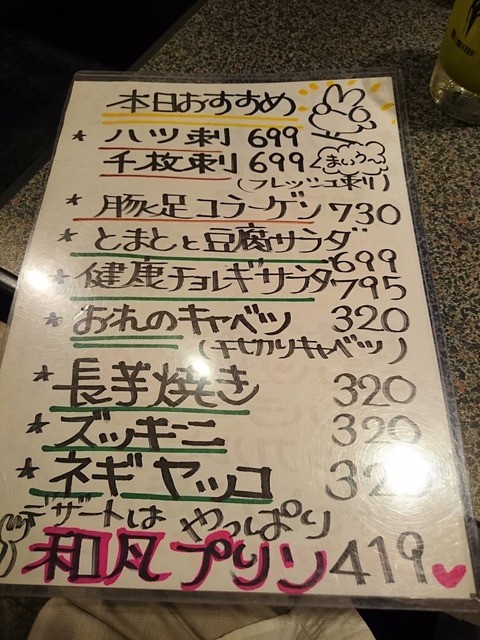 本日おすすめ
* ハツ刺 699
千枚刺 699
まいう〜
(フレッシュ刺り)
* 豚足コラーゲン 730
* とまとと豆腐サラダ 699
* 健康チョレギサラダ 795
* おれのキャベツ 320
(千切りキャベツ)
* 長芋焼き 320
* ズッキーニ 320
* ネギヤッコ 320
デザートは やっぱり
和凡プリン 419